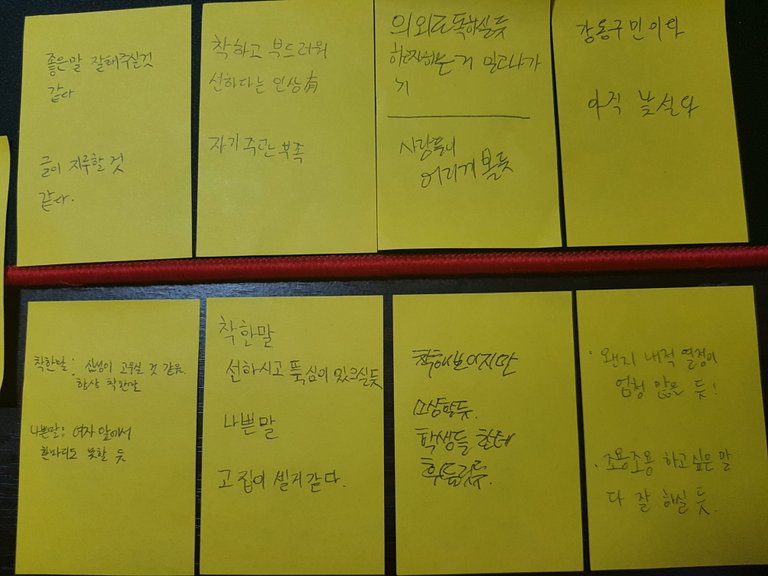 좋은말 잘해주실것
같다
글이 지루할 것
같다.
착하고 부드러워
선하다는 인상有
자기주관 부족
의외로 독하실듯
하고자하는거 밀고나가
기
사람들이
어리게 볼듯
강동구민이라
아직 낯설다
착한말: 심성이 고우실 것 같음.
항상 착한말
나쁜말: 여자 앞에서
한마디도 못할 듯
착한말
선하시고 뚝심이 있으실듯
나쁜말
고집이 셀거 같다.
착해보이지만
학생들 한테
휘둘릴듯.
· 왠지 내적 열정이
엄청 많은 듯!
· 조용조용 하고싶은 말
다 잘 하실 듯.